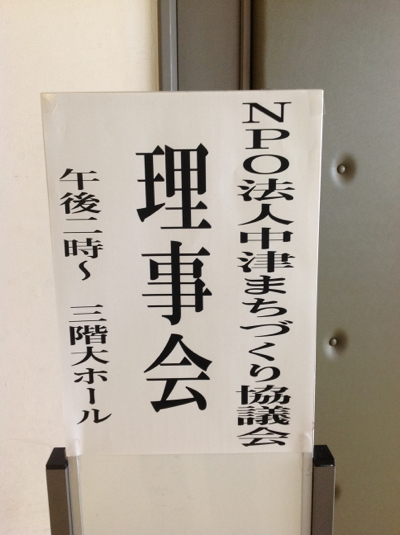 NPO法人中津まちづくり協議会
理事会
午後二時〜 三階大ホール